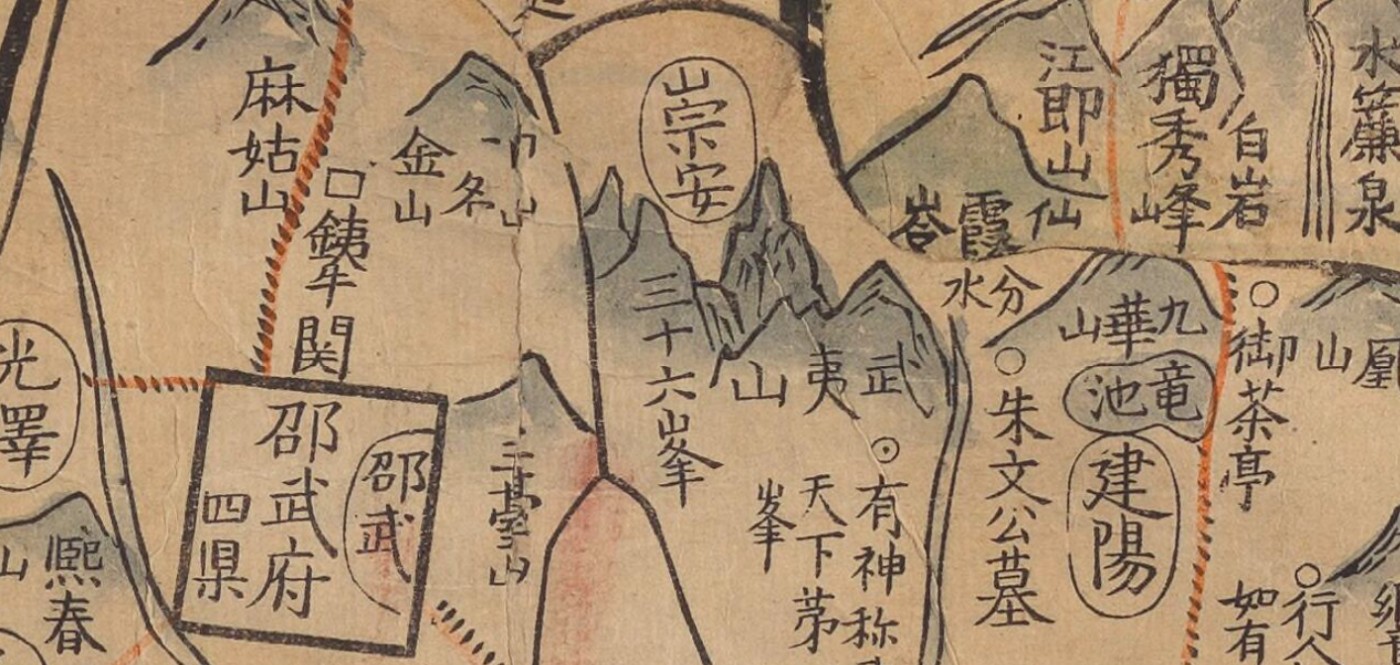 麻姑山
金山
名山
銕牢関
光澤
邵武府
四県
邵武
熈春
山
三臺山
崇安
三十六峯
武夷山
有神称
天下茅
峯
江郎山
仙霞
獨秀峰
白岩
水簾泉
分水
九華山
九竜池
朱文公墓
建陽
御茶亭
凰山
行人
如有